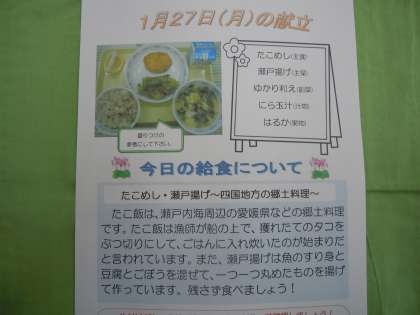 1月27日(月)の献立
たこめし(主食)
瀬戸揚げ(主菜)
ゆかり和え(副菜)
にら玉汁(汁物)
はるか(果物)
盛りつけの
参考にして下さい。
今日の給食について
たこめし・瀬戸揚げ～四国地方の郷土料理～
たこ飯は、瀬戸内海周辺の愛媛県などの郷土料理
です。たこ飯は漁師が船の上で、獲れたてのタコを
ぶつ切りにして、ごはんに入れ炊いたのが始まりだ
と言われています。また、瀬戸揚げは魚のすり身と
豆腐とごぼうを混ぜて、一つ一つ丸めたものを揚げ
て作っています。残さず食べましょう！